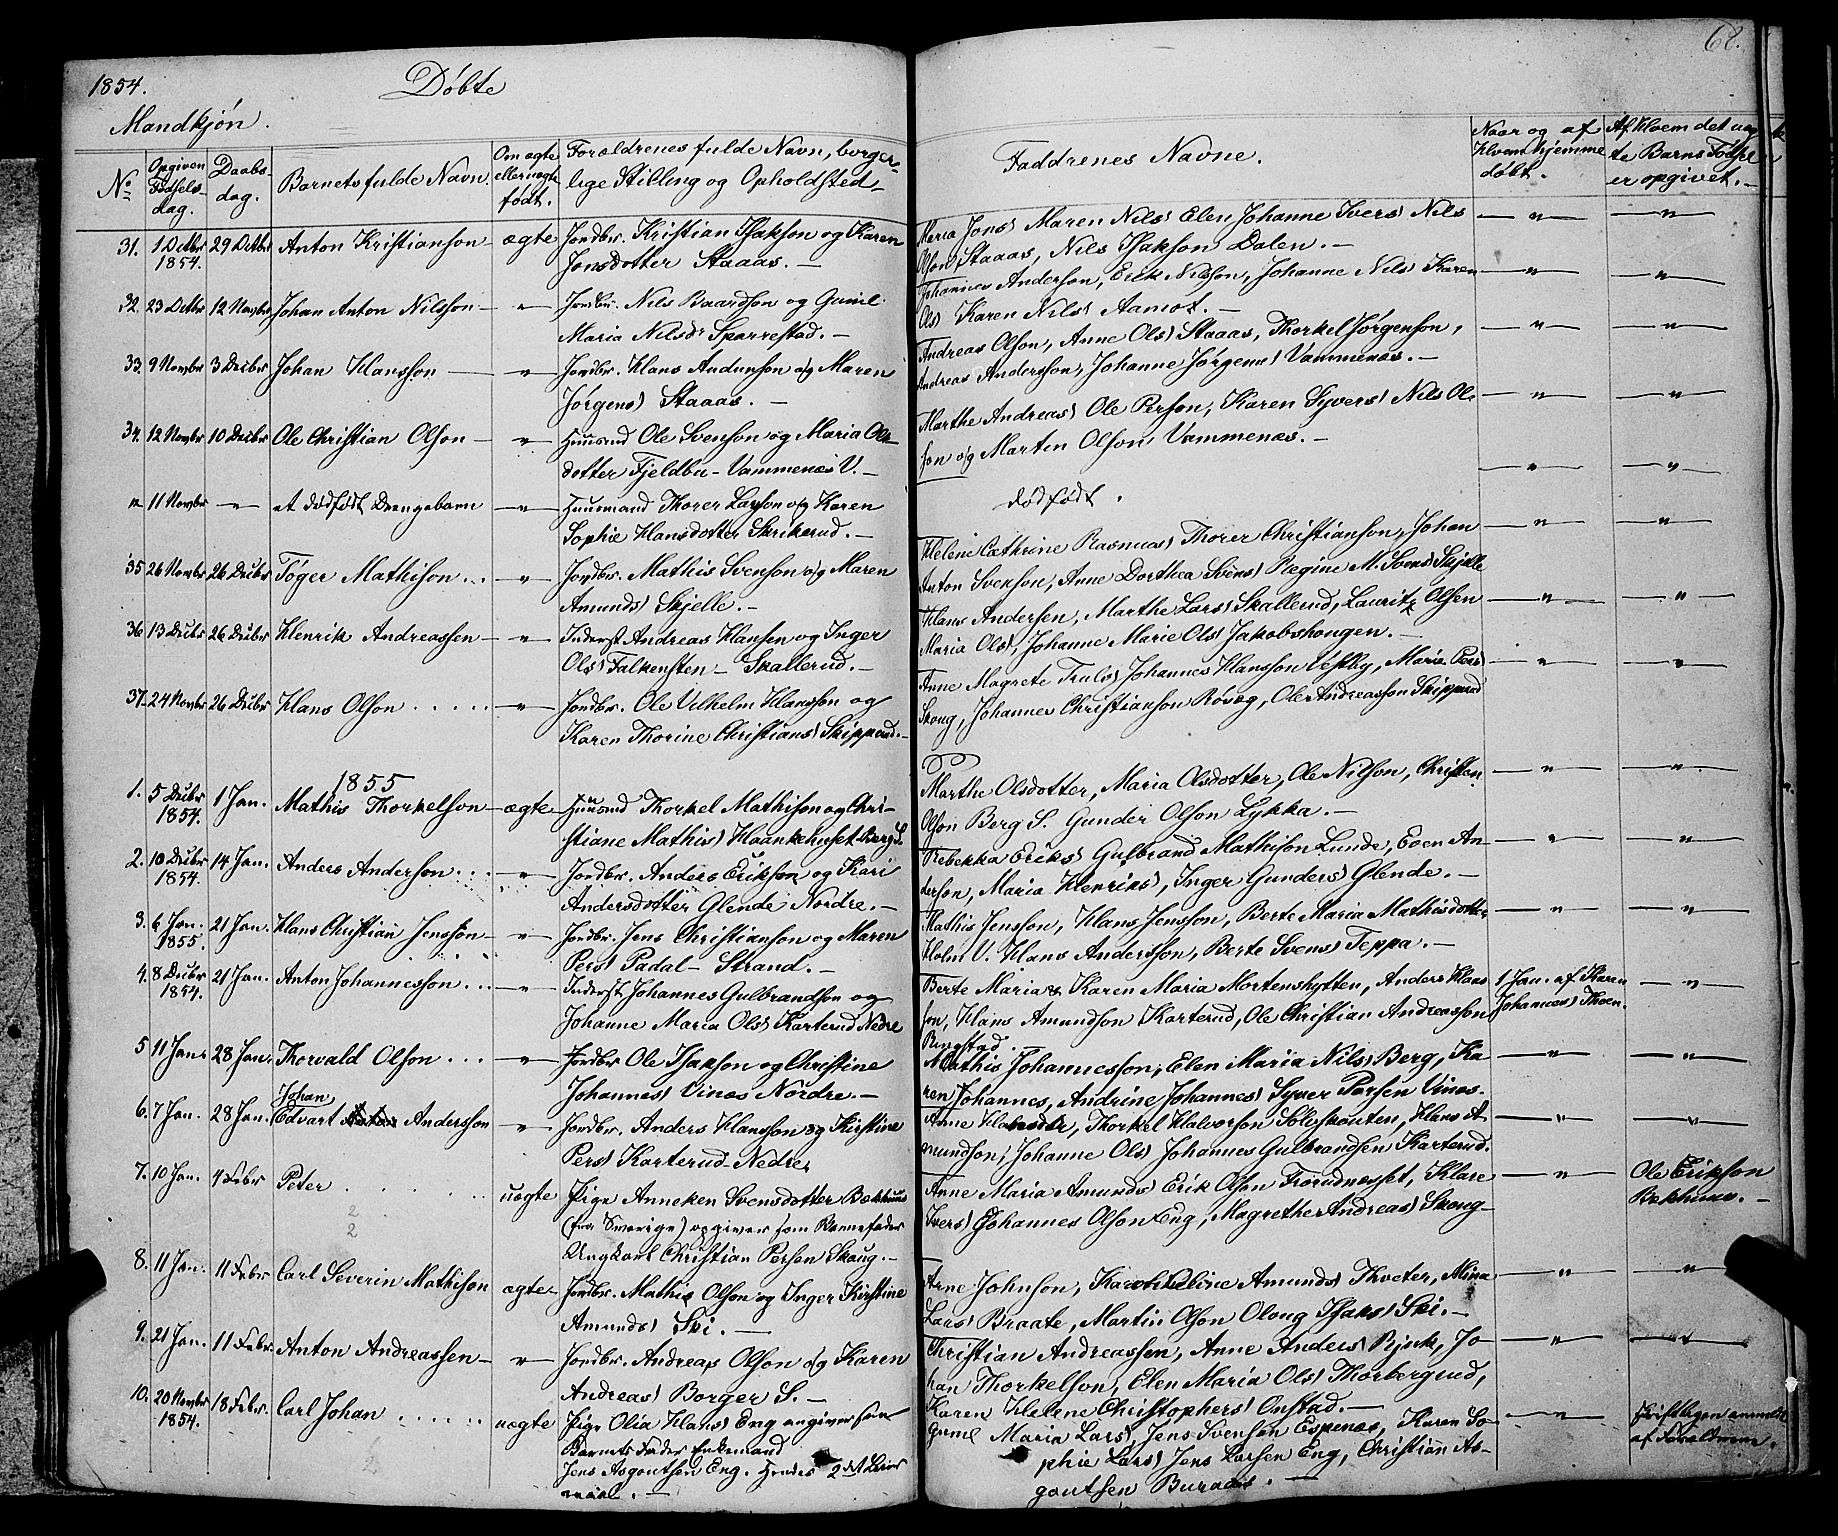 1854. Døbte 68.
Mandkjøn.
No. Opgiven Fødsels- dag. Daabs- dag. Barnets fulde Navn. Om ægte eller uægte født. Forældrenes fulde Navn, borger- lige Stilling og Opholdsted. Faddrenes Navne. Naar og af Hvem hjemme døbt. Af Hvem det uægte Barns Fødsel er opgivet.
31. 1 Octbr 1854. 29 Octbr Anton Kristianson ægte Jordbr. Kristian Isakson og Karen
Jonsdotter Staaas.
Maria Jons) Maren Nils) Elen Johanne Ivers) Nils
Olson) Staaas, Nils Isakson Dalen.
32. 23 Octbr 12 Novbr Johan Anton Nilsson " Jordbr. Nils Baardson og Gunil
Maria Nilsdr Sparrestad.
Johannes Anderson, Erik Nilsson, Johanne Nils) Karen
Ols) Karen Nils) Aamot.
33. 9 Novbr 3 Decbr Johan Hansson " Jordbr. Hans Andunson og Maren
Jørgens) Staaas.
Andreas Olson, Anne Ols) Staaas, Thorkel Jørgenson,
Andreas Andersson, Johanne Jørgens) Vammenæs.
34. 12 Novbr 10 Decbr Ole Christian Olson " Huusmd Ole Svenson og Maria Ols-
dotter Fjeldbu - Vammenæs V.
Marthe Andreas) Ole Person, Karen Syvers) Nils Ol-
son og Marten Olson, Vammenæs.
" 11 Novbr - et dødfødt Drengebarn " Huusmand Thorer Larsson og Karen
Sophie Hansdotter Skrikerud.
dødfødt.
35 26 Novbr 26 Decbr Tøger Mathison " Jordbr. Mathis Svenson og Maren
Amunds) Skjelle.
Helene Cathrine Rasmus) Thorer Christianson, Johan
Anton Svenson, Anne Dorthea Svens) Regine M. Svens) Skjelle
36 13 Decbr 26 Decbr Henrik Andreassen " Inderst Andreas Hansen og Inger
Ols) Falkensten - Skallerud.
Hans Andersen, Marthe Lars) Skallerud, Lauritz Olsen
Maria Ols), Johanne Marie Ols) Jakobshougen.
37 24 Novbr 26 Decbr Hans Olson " Jordbr. Ole Vilhelm Hansson og
Karen Thorine Christians) Skipperud.
Anne Magrete Truls) Johannes Hansson Vestby, Maria Pers)
Skoug, Johannes Christianson Røvæg, Ole Andreasson Skipperud
1855
1. 5 Decbr 1854. 1 Jan. Mathis Thorkelson ægte Huusmd Thorkel Mathison og Chri-
stiane Mathis) Haankehuset Berg S.
Marthe Olsdotter, Maria Olsdotter, Ole Nilson, Christian
Olson Berg S. Gunder Olson Lykka.
2. 10 Decbr 1854. 14 Jan. Anders Anderson " Jordbr. Anders Erikson og Kari
Andersdotter Glende Nordre.
Rebekka Eriks) Gulbrand Mathison Lunde, Even An-
derson, Maria Henriks), Inger Gunders) Glende.
3. 6 Jan. 1855. 21 Jan. Hans Christian Jensson " Jordbr. Jens Christianson og Maren
Pers) Padal - Strand.
Mathis Jensson, Hans Jensson, Berte Maria Mathisdotter
Holm V. Hans Andersson, Berte Svens) Teppa.
4. 8 Decbr 1854. 21 Jan. Anton Johannesson " Inderst Johannes Gulbrandson og
Johanne Maria Ols) Karterud Nedre
Berte Maria & Karen Maria Mortenshytten, Anders Hans
son, Hans Amundson Karterud, Ole Christian Andreasson
Ringstad.
1 Jan. af Karen
Johannes) Thoen.
5 11 Jan. 28 Jan. Thorvald Olson " Jordbr. Ole Isakson og Christine
Johannes) Vines Nordre
Mathis Johannesson, Elen Maria Nils) Berg, Ka-
ren Johannes, Andrine Johannes) Syver Persen Vines.
6. 7 Jan. 28 Jan. Johan
Edvart Andersson " Jordbr. Anders Hansson og Kirstine
Pers) Karterud Nedre
Anne, Thorkel Halvorson Soleskouten, Hans A-
mundson, Johanne Ols) Johannes Gulbrandsen Karterud.
7. 10 Jan. 4 Febr Peter uægte Pige Anneken Svensdotter Bækhuus
(fra Sverige) opgiver som Barnefader
Ungkarl Christian Person Skoug.
Anne Maria Amunds) Erik Olson Trorudnesset, Klare
Ivers) Johannes Olson Eng, Magrethe Andreas) Skoug
Ole Erikson
Bækhuus.
8. 11 Jan. 11 Febr Carl Severin Mathison ægte Jordbr. Mathis Olson og Inger Kirstine
Amunds) Ski.
Arne Johnson, Karen Amunds) Thveter, Mina
Lars) Braate, Martin Olson Oloug Isaks) Ski.
9. 21 Jan. 11 Febr Anton Andreassen " Jordbr. Andreas Olson og Karen
Andreas) Borger S.
Christian Andreassen, Anne Anders) Rjnk, Jo-
han Thorkelson, Elen Maria Ols) Thorbergrud,
10. 20 Novbr 1854. 18 Febr. Carl Johan uægte Pige Olia Hans) Eng angiver som
Barnets Fader Enkemand
Jens Asgoutsen Eng. Hendes 2det Leier
maal.
Karen Helene Christophers) Onstad.
Gunil Maria Lars) Jens Svenson Espenæs, Karen So-
phie Lars) Jens Larsen Eng, Christian As-
goutsen Buraas.
Skriftligen anmeldt
af Forældrene.